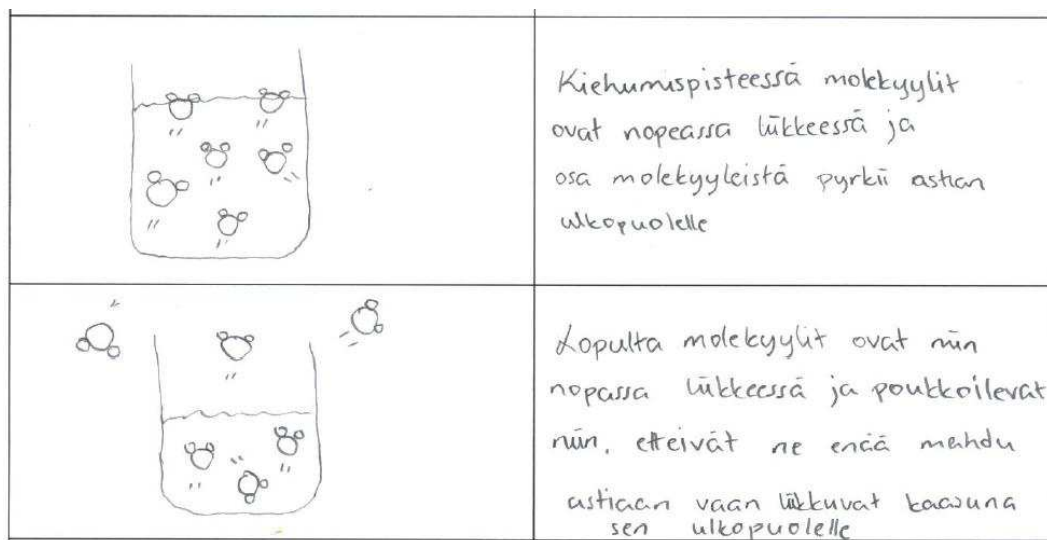 Kiehumispisteessä molekyylit
ovat nopeassa liikkeessä ja
osa molekyyleistä pyrkii astian
ulkopuolelle
Lopulta molekyylit ovat niin
nopassa liikkeessä ja poukkoilevat
niin, etteivät ne enää mahdu
astiaan vaan liikkuvat kaasuna
sen ulkopuolelle